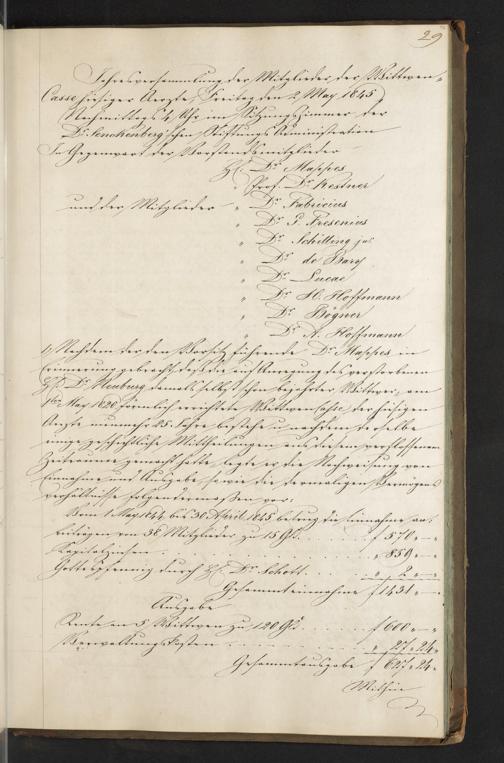 29
Jahresversammlung der Mitglieder der Wittwen-
Casse hiesiger Aerzte, Freitag den 2. May 1845
Nachmittags 4 Uhr im Sitzungszimmer der
Dr. Senckenberg'schen Stiftungs Administration
In Gegenwart der Vorstandsmitglieder
HH. Dr. Mappes
" Prof. Dr. Kestner
und der Mitglieder — " Dr. Fabricius
" Dr. G. Fresenius
" Dr. Schilling jr.
" Dr. de Bary
" Dr. Lucae
" Dr. H. Hoffmann
" Dr. Bögner
" Dr. A. Hoffmann
1, Nachdem der den Vorsitz führende Dr. Mappes in
Erinnerung gebracht, daß die auf Anregung des verstorbenen
H. Dr. Neuburg, damals selbst schon bejahrter Wittwer, am
1ten May 1820 förmlich errichtete Wittwen Casse der hiesigen
Aerzte nunmehr 25 Jahre bestehe, u. nachdem derselbe
einige geschichtliche Mittheilungen aus diesem verflossenen
Zeitraume gemacht hatte, legte er die Nachweisung von
Einnahme und Ausgabe sowie die dermaligen Vermögens
verhältnisse folgendermaßen vor:
Vom 1 May 1844 bis 30 April 1845 betrug die Einnahme an
beiträgen von 38 Mitglieder zu 15 Gld. . . . f 570 " — "
Kapitalzinsen . . . . . . " 859 " — "
Gottespfennig durch H. Dr. Schott . . . " 2 " — "
Gesammteinnahme f 1431 " — "
Ausgabe
Rente an 5 Wittwen zu 120 Gld. . . . . f 600 " — "
Verwaltungskosten . . . . . " 27 " 24 "
Gesammtausgabe f 627 " 24 "
Mithin